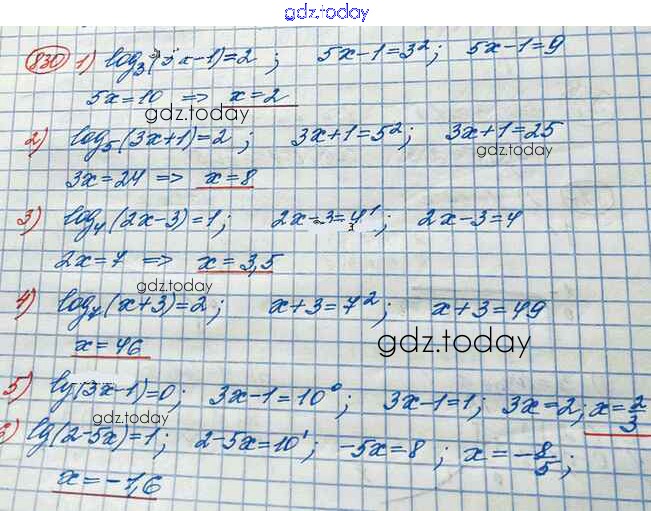 gdz.today
830 1) log₃(5x-1)=2; 5x-1=3²; 5x-1=9
5x=10 => x=2
gdz.today
2) log₅(3x+1)=2; 3x+1=5²; 3x+1=25
gdz.today
3x=24 => x=8
3) log₄(2x-3)=1; 2x-3=4¹; 2x-3=4
2x=7 => x=3,5
gdz.today
4) log₇(x+3)=2; x+3=7²; x+3=49
x=46
gdz.today
5) lg(3x-1)=0; 3x-1=10⁰; 3x-1=1; 3x=2; x=2/3
gdz.today
6) lg(2-5x)=1; 2-5x=10¹; -5x=8; x=-8/5;
x=-1,6